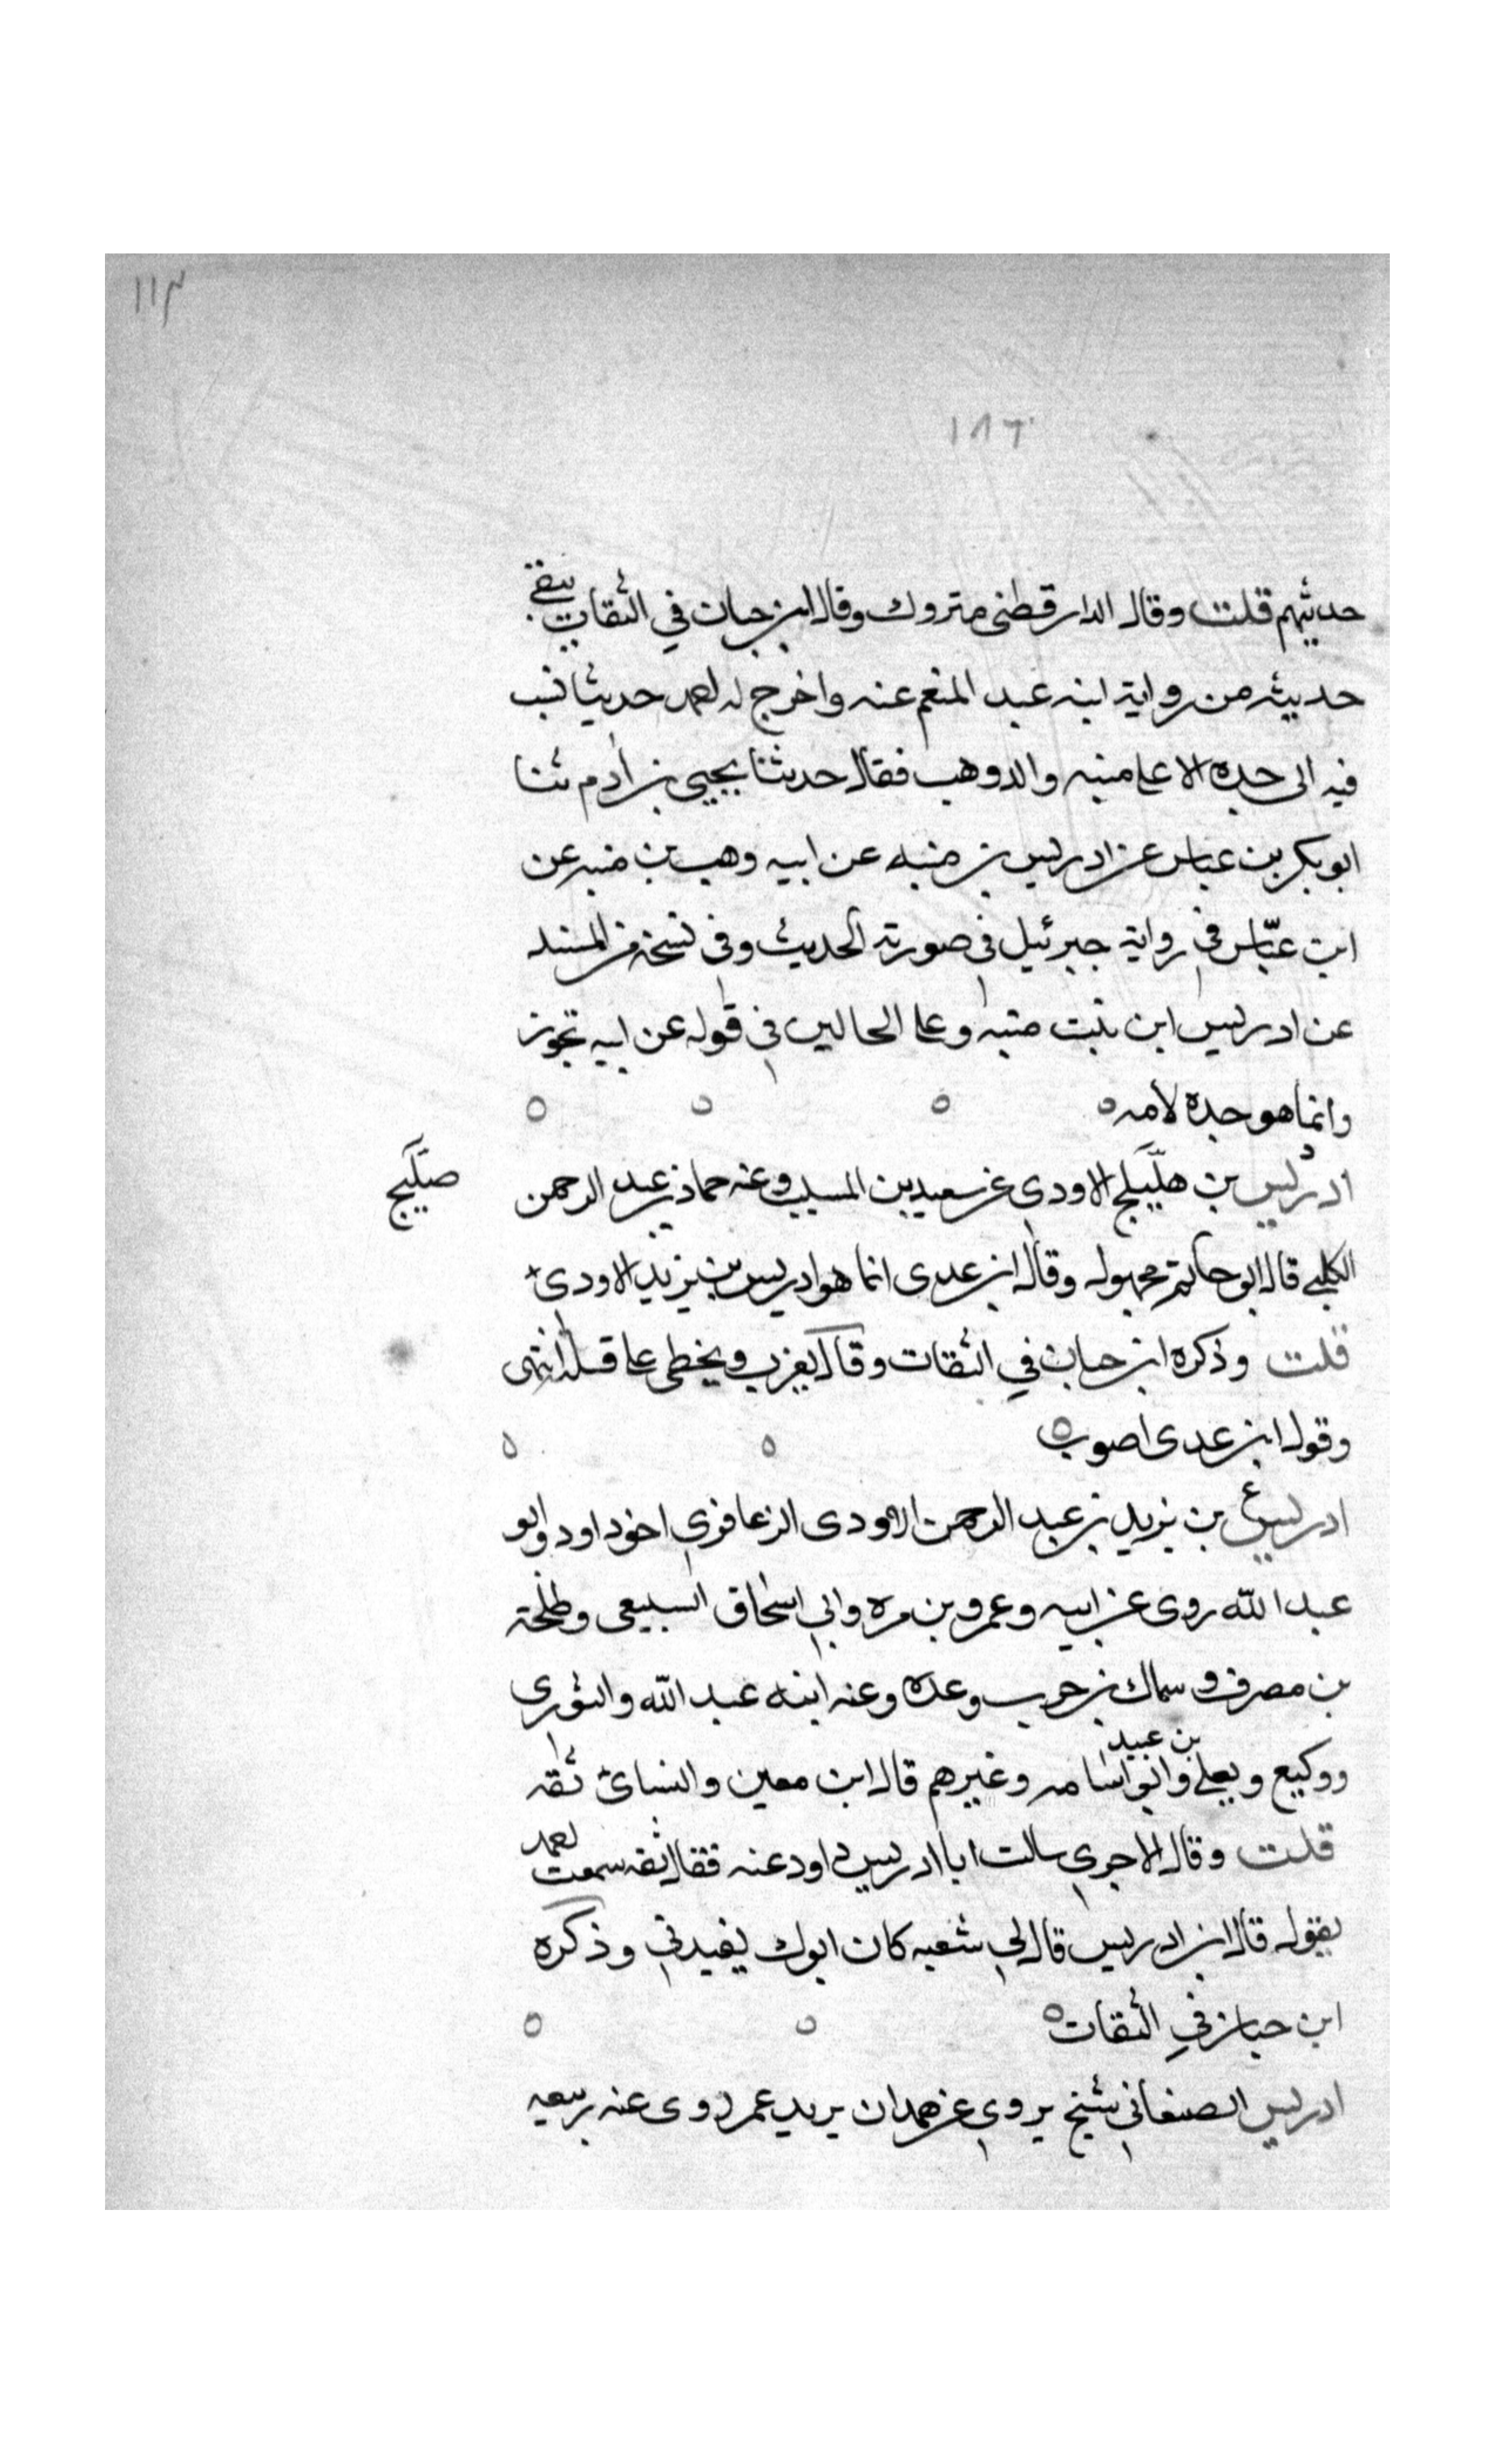 ١١٣
١٨٦
حديثهم قلت وقال الدارقطنى متروك وقال ابن حبان في الثقات يتقى
حديثه من رواية ابنه عبد المنعم عنه واخرج له احمد حديثا نسب
فيه الى جده الاعلا منبه والد وهب فقال حدثنا يحيى بن ادم ثنا
ابو بكر بن عياس عن ادريس بن منبه عن ابيه وهب بن منبه عن
ابن عبّاس في رواية جبرئيل في صورته الحديث وفي نسخة من المسند
عن ادريس ابن بنت منبه وعلى الحالين في قوله عن ابيه تجوز
وانما هو جده لأمه
ادريس بن هليلج الاودي عن سعيد بن المسيب وعنه حماد بن عبد الرحمن
صليح
الكلبي قال ابو حاتم مجهول وقال ابن عدى انما هو ادريس بن يزيد الاودى
قلت وذكره ابن حبان في الثقات وقال يغرب ويخطى على قلته انتهى
وقول ابن عدى اصوب
ادريس ع بن يزيد بن عبد الرحمن الاودى الزعافري اخو داود وابو
عبد الله روى عن ابيه وعمرو بن مره وابي اسحاق السبيعى وطلحة
بن مصرف وسماك بن حرب وعده وعنه ابنه عبد الله والثوري
ووكيع ويعلى بن عبيد وابو اسامه وغيرهم قال ابن معين والنسائ ثقه
قلت وقال الاجري سالت ابا ادريس داود عنه فقال ثقه سمعت احمد
يقول قال ابن ادريس قال لي شعبه كان ابوك يفيدني وذكره
ابن حبان في الثقات
ادريس الصنعاني شيخ يروي عن همدان بريد عمر روى عنه ربيعه